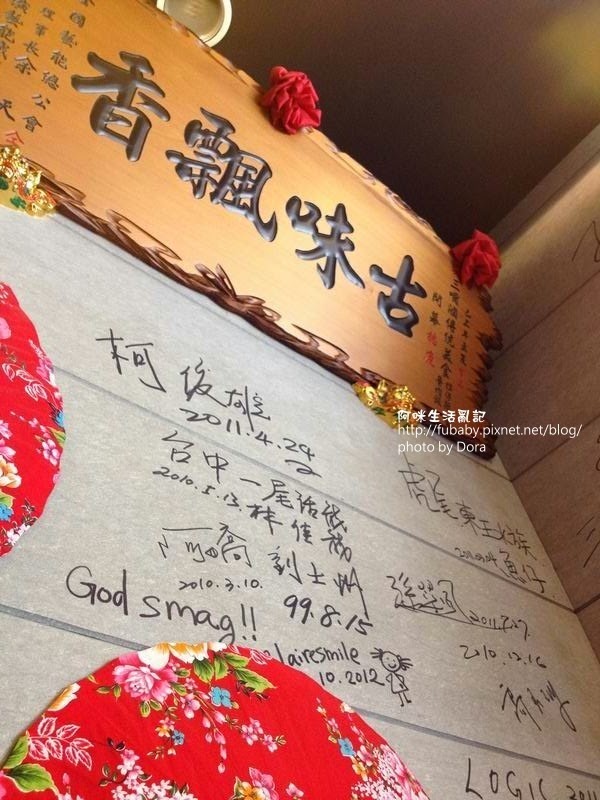 古味飄香
全國藝能總公會
理事長余天
開幕
柯俊雄
2011.4.29
台中一尾活龍
2010.5.13. 林佳
雨喬 劉士州
2010.3.10. 99.8.15
God smag!!
lairesmile
10.2012
虎尾東王水族
魚仔
2011.7.27.
2010.12.16
LOGIC 2011
阿咪生活亂記
http://fubaby.pixnet.net/blog/
photo by Dora